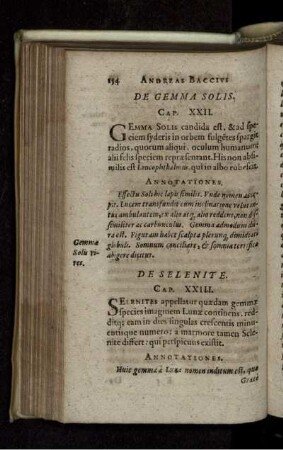 154 ANDREAS BACCIVS
DE GEMMA SOLIS.
CAP. XXII.
GEMMA SOLIS candida est, & ad speciem
syderis in orbem fulgẽtes spargit
radios, quorum aliqui oculum humanum
alii felis speciem repræsentant. His non absimilis
est Leucophthalmos, qui in albo rubescit.
ANNOTATIONES.
Effectu Soli hic lapis similis. Vnde nomen
Lucem transfundit cum inclinatione
ambulantem, ex alio atq. alio reddens, non
dissimiliter ac carbunculus. Gemma admodum
est. Figuram habet scalpta plerunq. dimidiati
globuli. Somnum conciliare, & somnia
abigere dicitur.
Gemmæ
Solis vires.
DE SELENITE.
CAP. XXIII.
SELENITES appellatur quædam gemmæ
species imaginem Lunæ continens, redditq;
eam in dies singulas crescentis minuentisque
numero: a marmore tamen Selenite
differt: qui perspicuus existit.
ANNOTATIONES.
Huic gemmæ à Luna nomen inditum est, quæ
Græcè